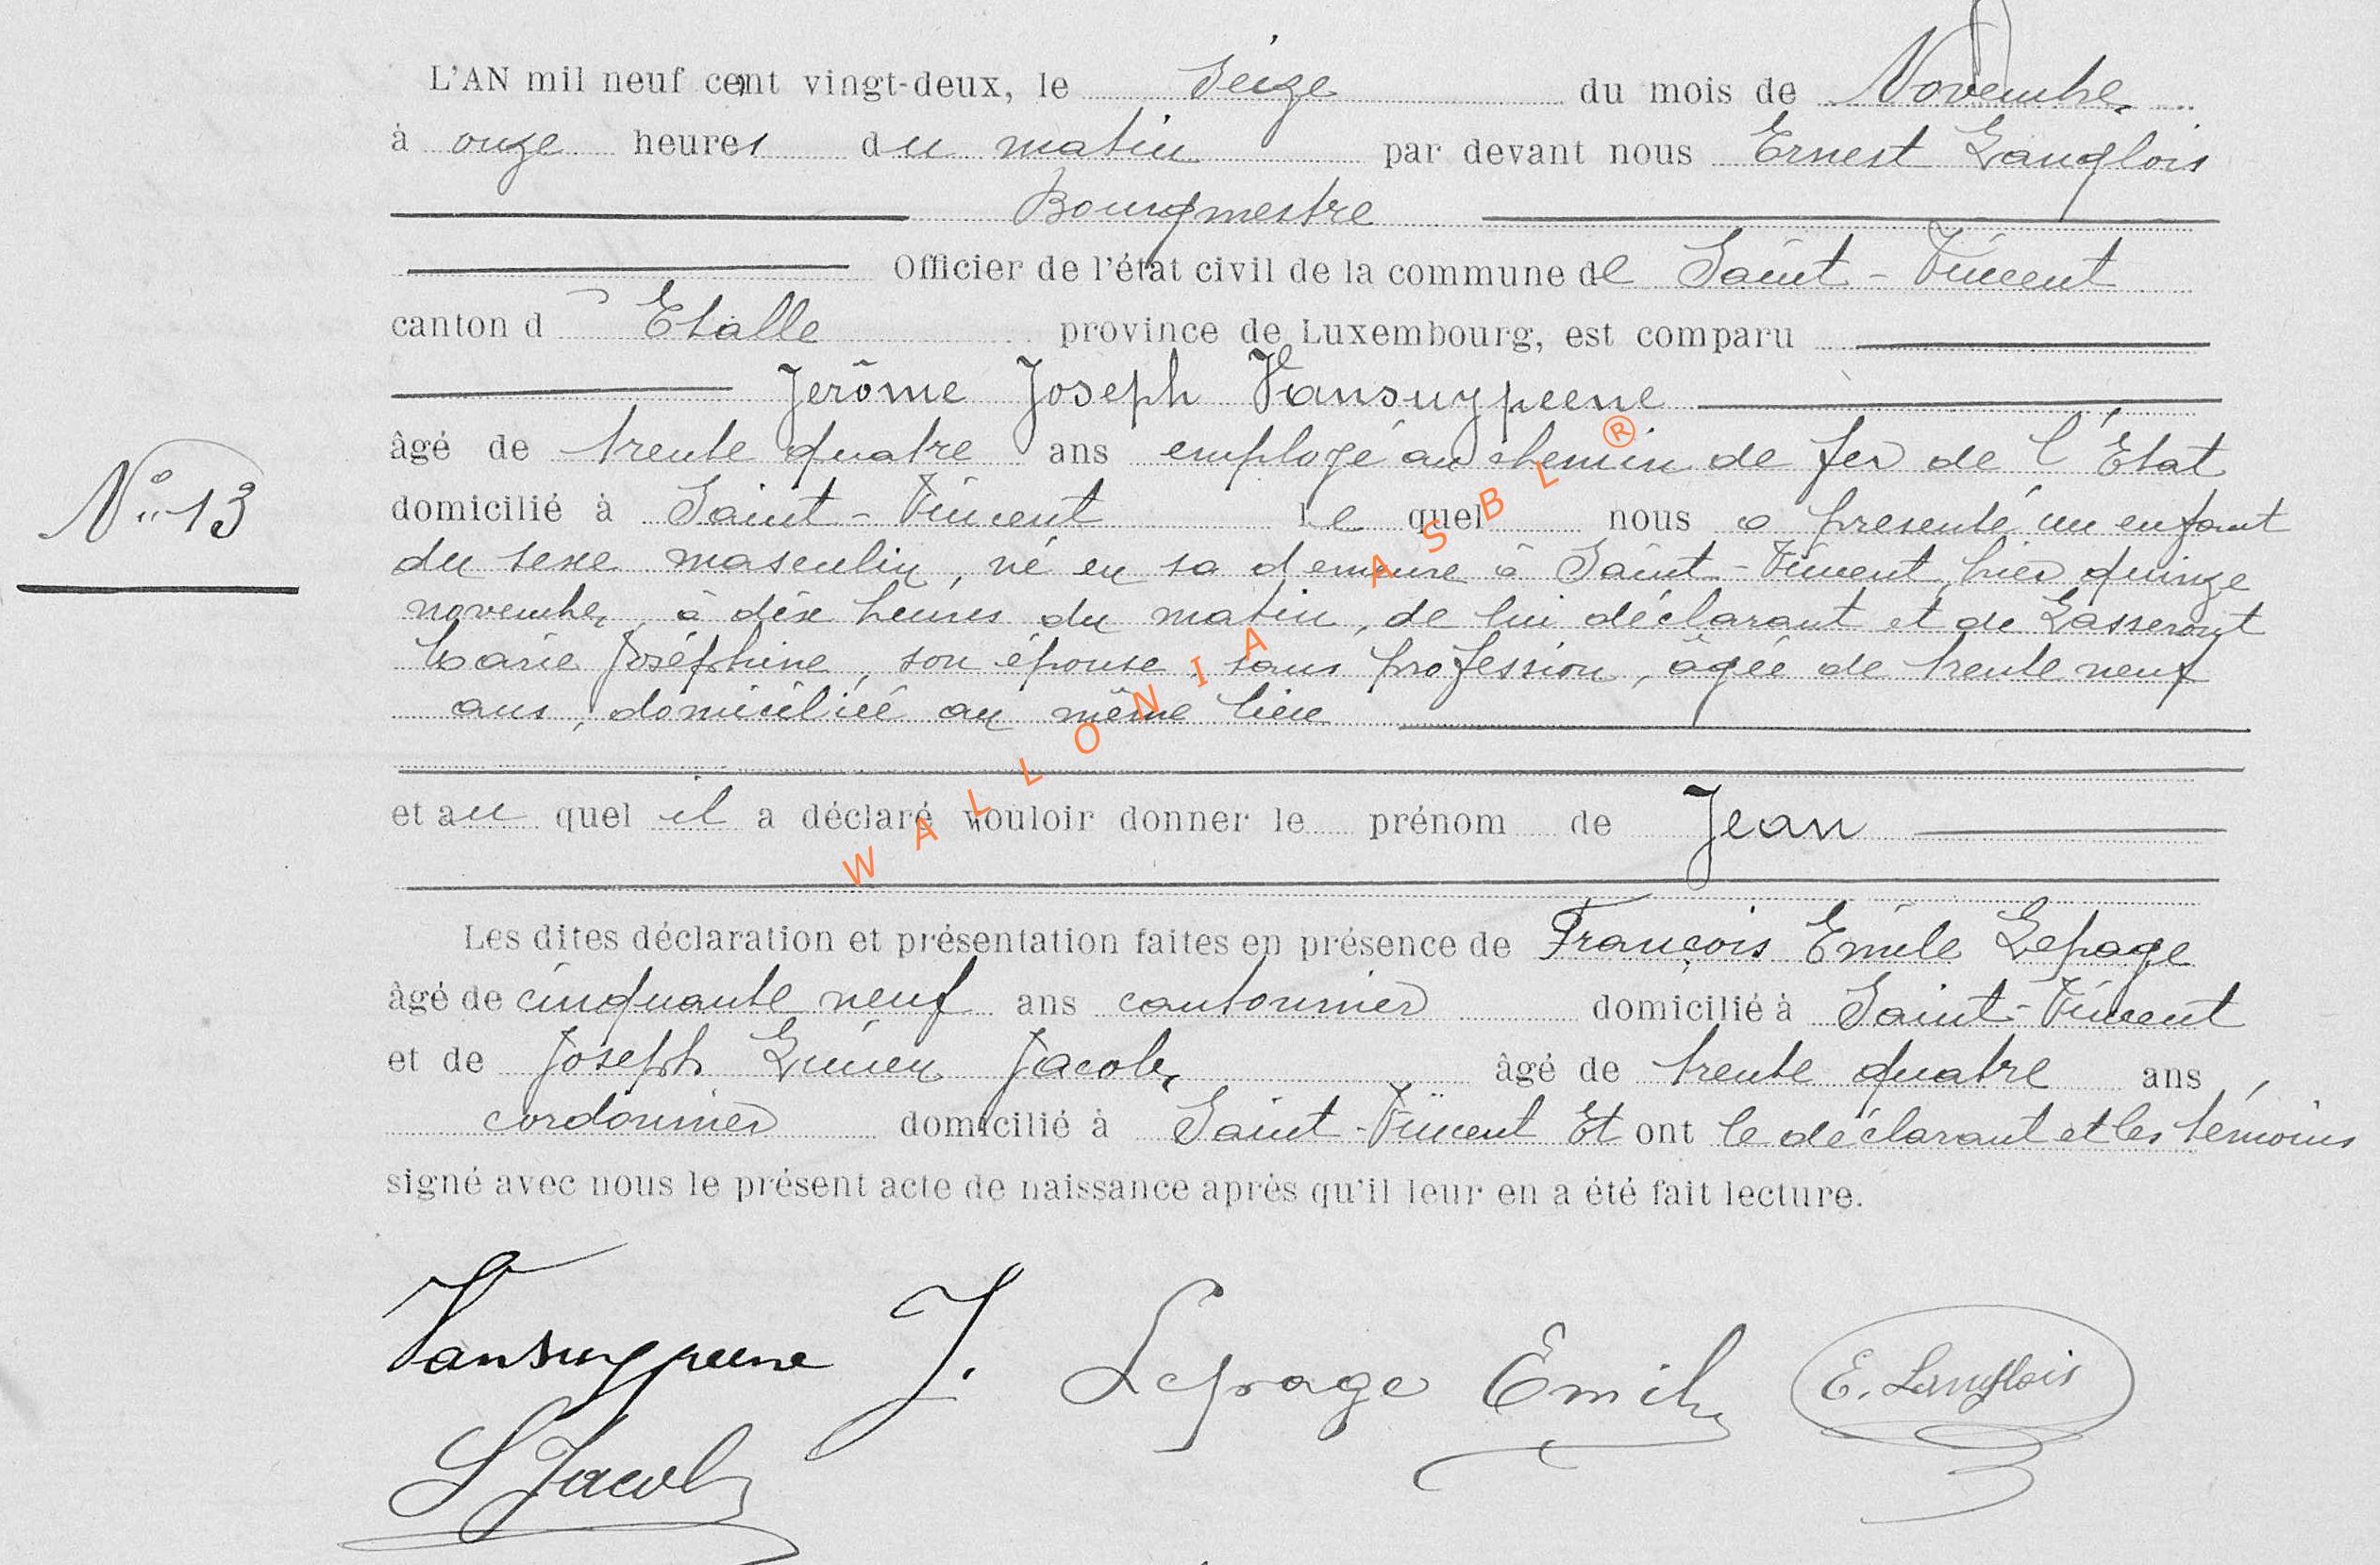 L'AN mil neuf cent vingt-deux, le seize du mois de Novembre
à onze heures du matin par devant nous Ernest Langlois
Bourgmestre
Officier de l'état civil de la commune de Saint-Vincent
canton d'Etalle province de Luxembourg, est comparu
Jerôme Joseph Vansuypeene
âgé de trente quatre ans employé au chemin de fer de l'Etat
N° 13
domicilié à Saint-Vincent le quel nous a présenté un enfant
du sexe masculin, né en sa demeure à Saint-Vincent, hier quinze
novembre, à dix heures du matin, de lui déclarant et de Lasseront
Marie Joséphine, son épouse, sans profession, âgée de trente neuf
ans, domiciliée au même lieu
et au quel il a déclaré vouloir donner le prénom de Jean
Les dites déclaration et présentation faites en présence de François Emile Lepage
âgé de cinquante neuf ans cantonnier domicilié à Saint-Vincent
et de Joseph Lucien Jacob, âgé de trente quatre ans
cordonnier domicilié à Saint-Vincent Et ont le déclarant et les témoins
signé avec nous le présent acte de naissance après qu'il leur en a été fait lecture.
Vansuypeene J. Lepage Emile E. Langlois
L Jacob
WALLONIA ASBL ®